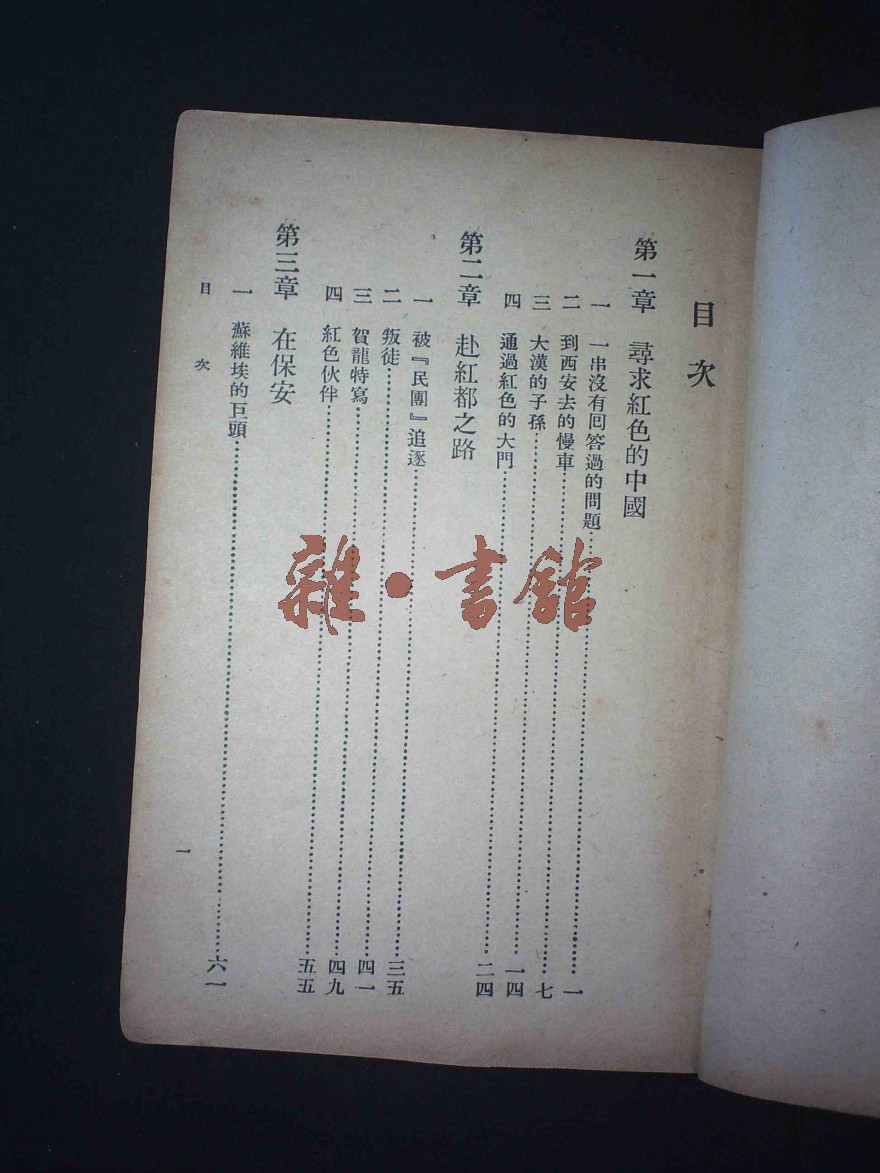 目次
第一章　尋求紅色的中國
一　一串沒有囘答過的問題……一
二　到西安去的慢車……七
三　大漢的子孫……一四
四　通過紅色的大門……二四
第二章　赴紅都之路
一　被『民團』追逐……三五
二　叛徒……四一
三　賀龍特寫……四九
四　紅色伙伴……五五
第三章　在保安
一　蘇維埃的巨頭……六一
目次
一
雜·書館